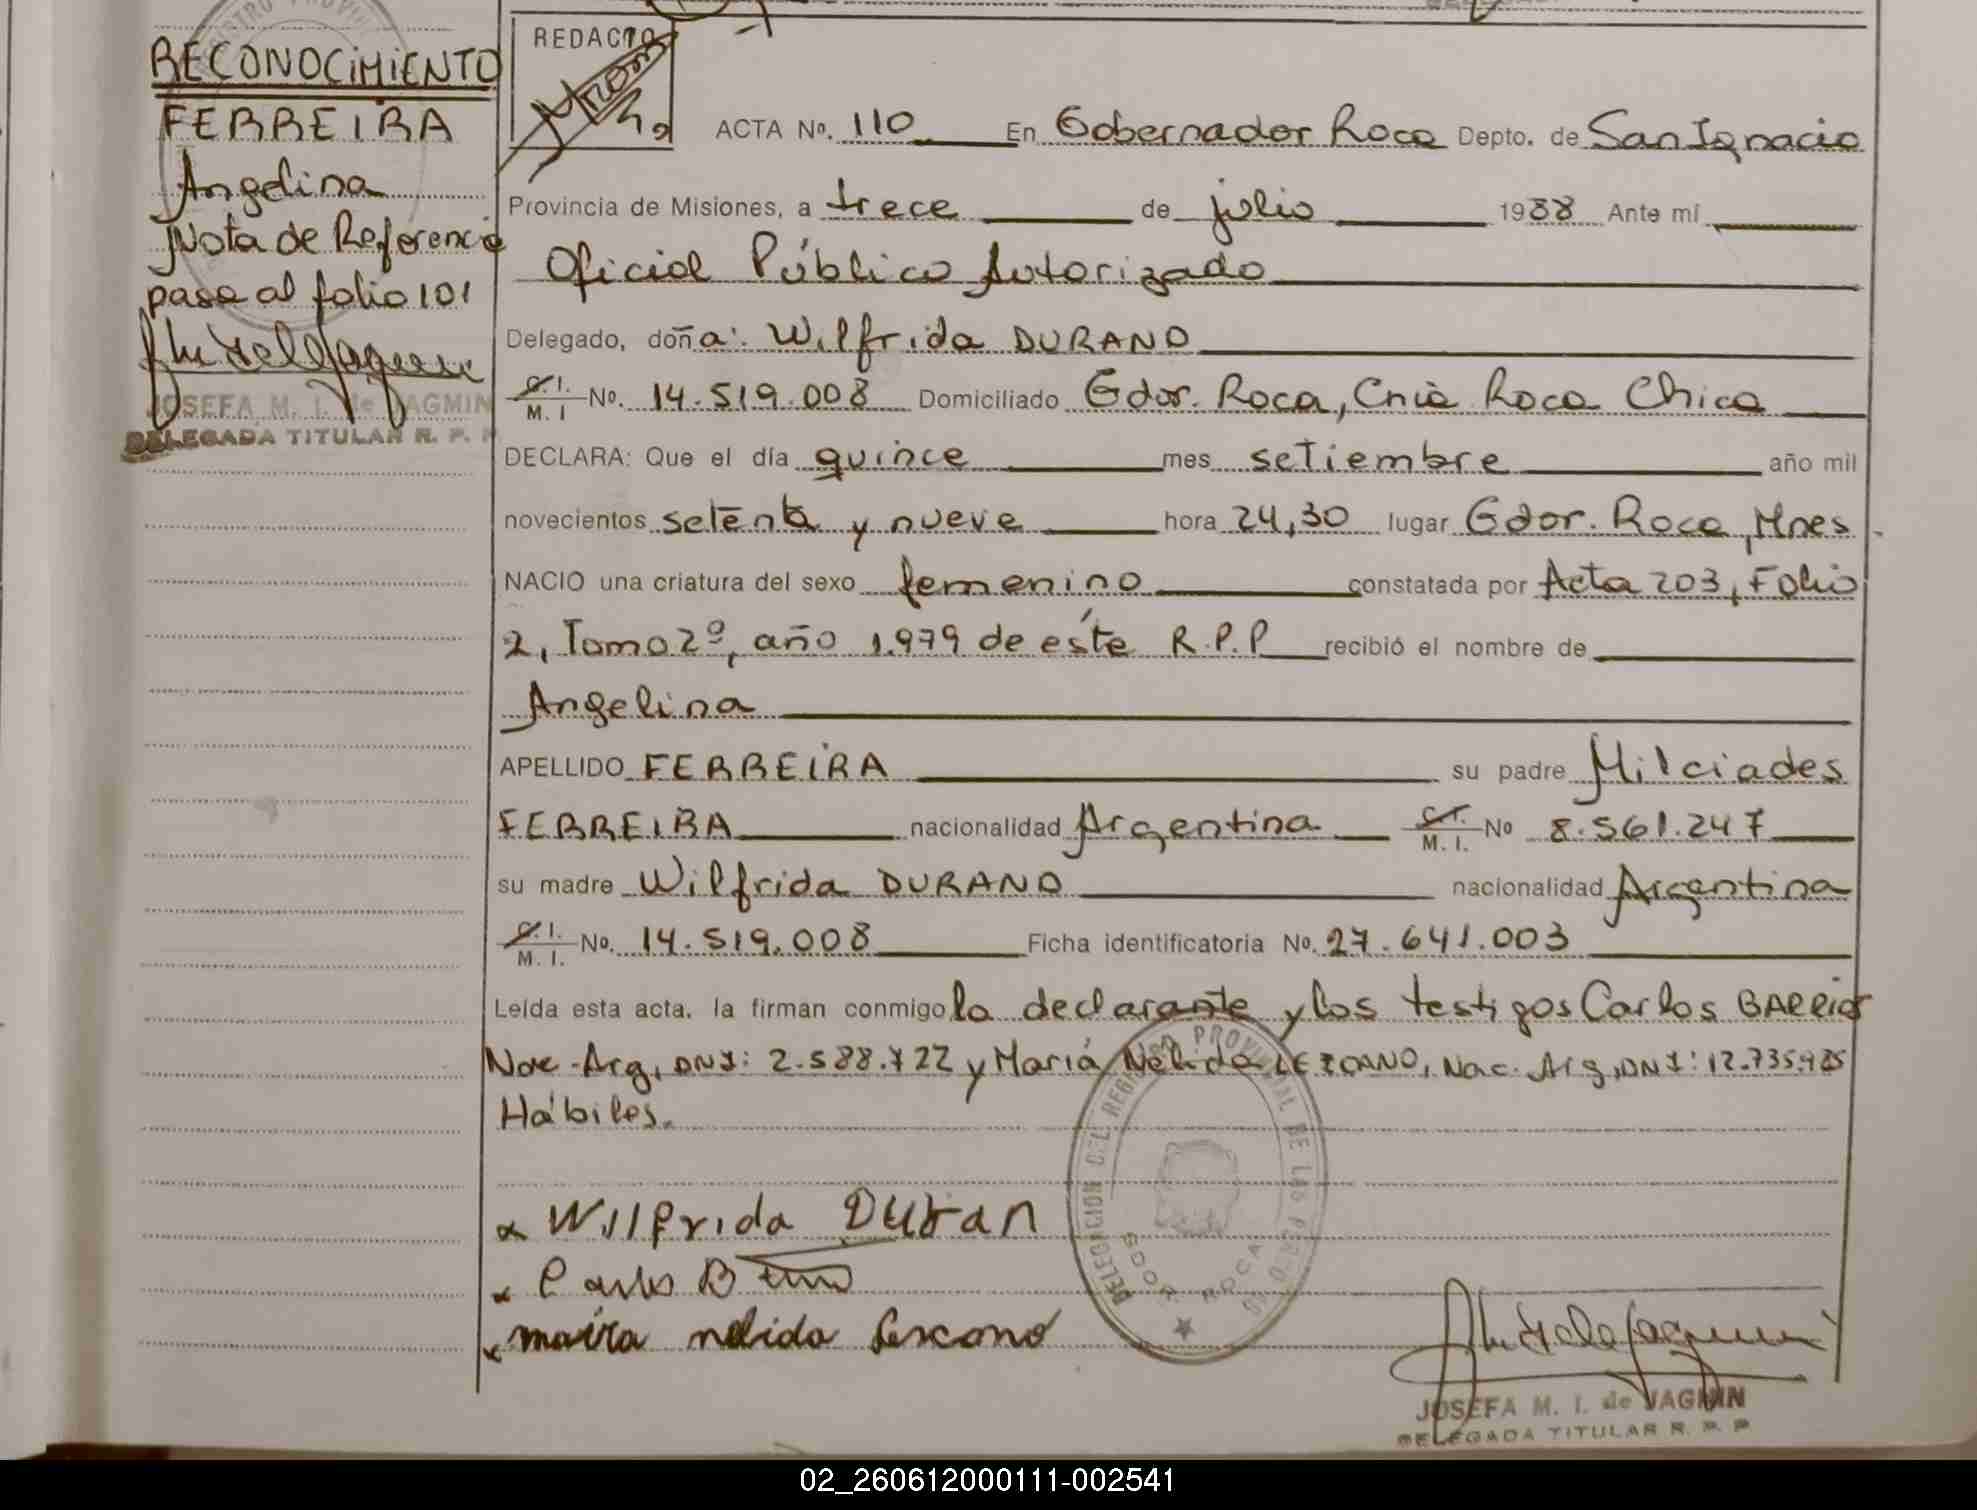 RECONOCIMIENTO
FERREIRA
Angelina
Nota de Referencia
pasa al folio 101
JOSEFA M. I. de JAGMIN
DELEGADA TITULAR R. P. P
REDACTO
ACTA No. 110 En Gobernador Roca Depto. de San Ignacio
Provincia de Misiones, a trece de julio 1988 Ante mí
Oficial Público Autorizado
Delegado, doña: Wilfrida DURAND
C.I. M. I No. 14.519.008 Domiciliado Gdor. Roca, Cnia Roca Chica
DECLARA: Que el día quince mes setiembre año mil
novecientos setenta y nueve hora 24,30 lugar Gdor. Roca, Mnes.
NACIO una criatura del sexo femenino constatada por Acta 203, Folio
2, Tomo 2º, año 1.979 de éste R.P.P recibió el nombre de
Angelina
APELLIDO FERREIRA su padre Milciades
FERREIRA nacionalidad Argentina C.I. M. I. No 8.561.247
su madre Wilfrida DURAND nacionalidad Argentina
C.I. M. I. No. 14.519.008 Ficha identificatoria No. 27.641.003
Leída esta acta, la firman conmigo la declarante y los testigos Carlos BARRIOS
Nac. Arg, DNI: 2.588.722 y Mariá Nélida LEZCANO, Nac. Arg, DNI: 12.735.925
Hábiles.
DELEGACION DEL REGISTRO PROVINCIAL DE LAS PERSO
GDOR. ROCA
x Wilfrida Duran
x Carlos B
x maira nelida Lescano
JOSEFA M. I. de JAGMIN
DELEGADA TITULAR R. P. P
02_260612000111-002541